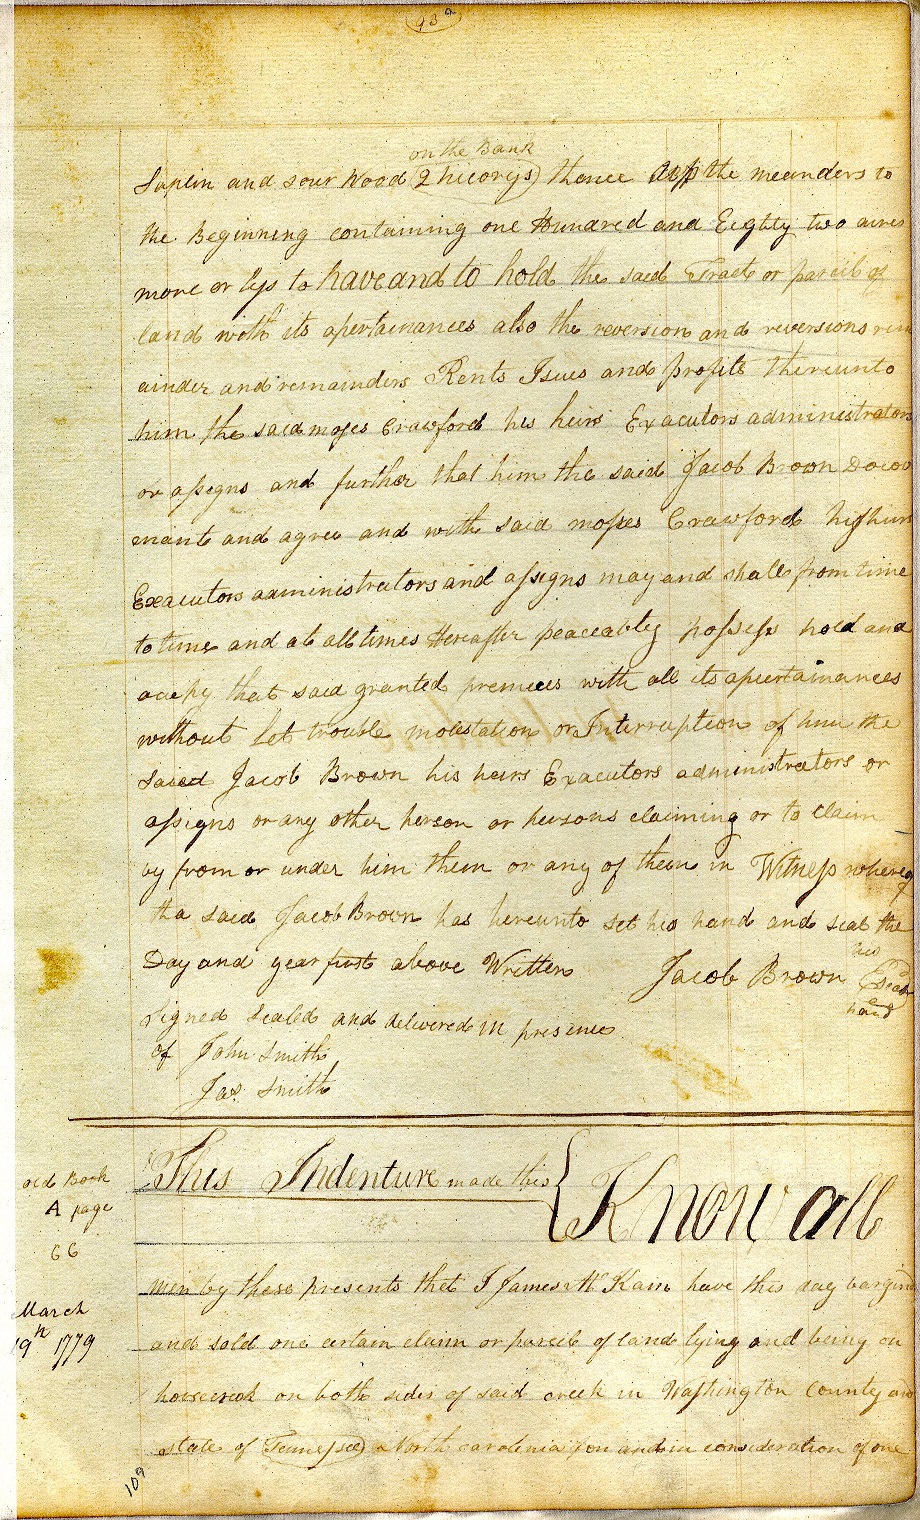 93a
on the Bank
Saplin and sour wood (2 hicorys) thence up the meanders to
the Beginning containing one Hundred and Eighty two acres
more or less to have and to hold the said Tract or parcil of
land with its apertainances also the reversion and reversions rem
ainder and remainders Rents Isues and profits thereunto
him the said moses Crawford his heirs Exacutors administrators
or assigns and further that him the said Jacob Brown Docov
enant and agree and with said mosses Crawford his heirs
Exacutors administrators and assigns may and shall from time
to time and at all times Hereafter peaceabley possess hold and
ocupy that said granted premices with all its apertainances
without Let trouble molistation or Interruption of him the
said Jacob Brown his heirs Exacutors administrators or
assigns or any other person or persons claiming or to claim
by from or under him them or any of them in Witness whereof
tha said Jacob Brown has hereunto set his hand and seal the
Day and year first above Written Jacob Brown his
Seal
hand
Signed Sealed and delivered in presence
of John Smith
Jas. Smith
old Book
A page
66
This Indenture made this { Know all
men by these presents thet I James McKain have this day bargind
March
19th 1779
and sold one certain claim or parcil of land lying and being on
horsecreek on both sides of said creek in Washington County and
state of (Tennessee) North carolenia for and in consideration of one
109